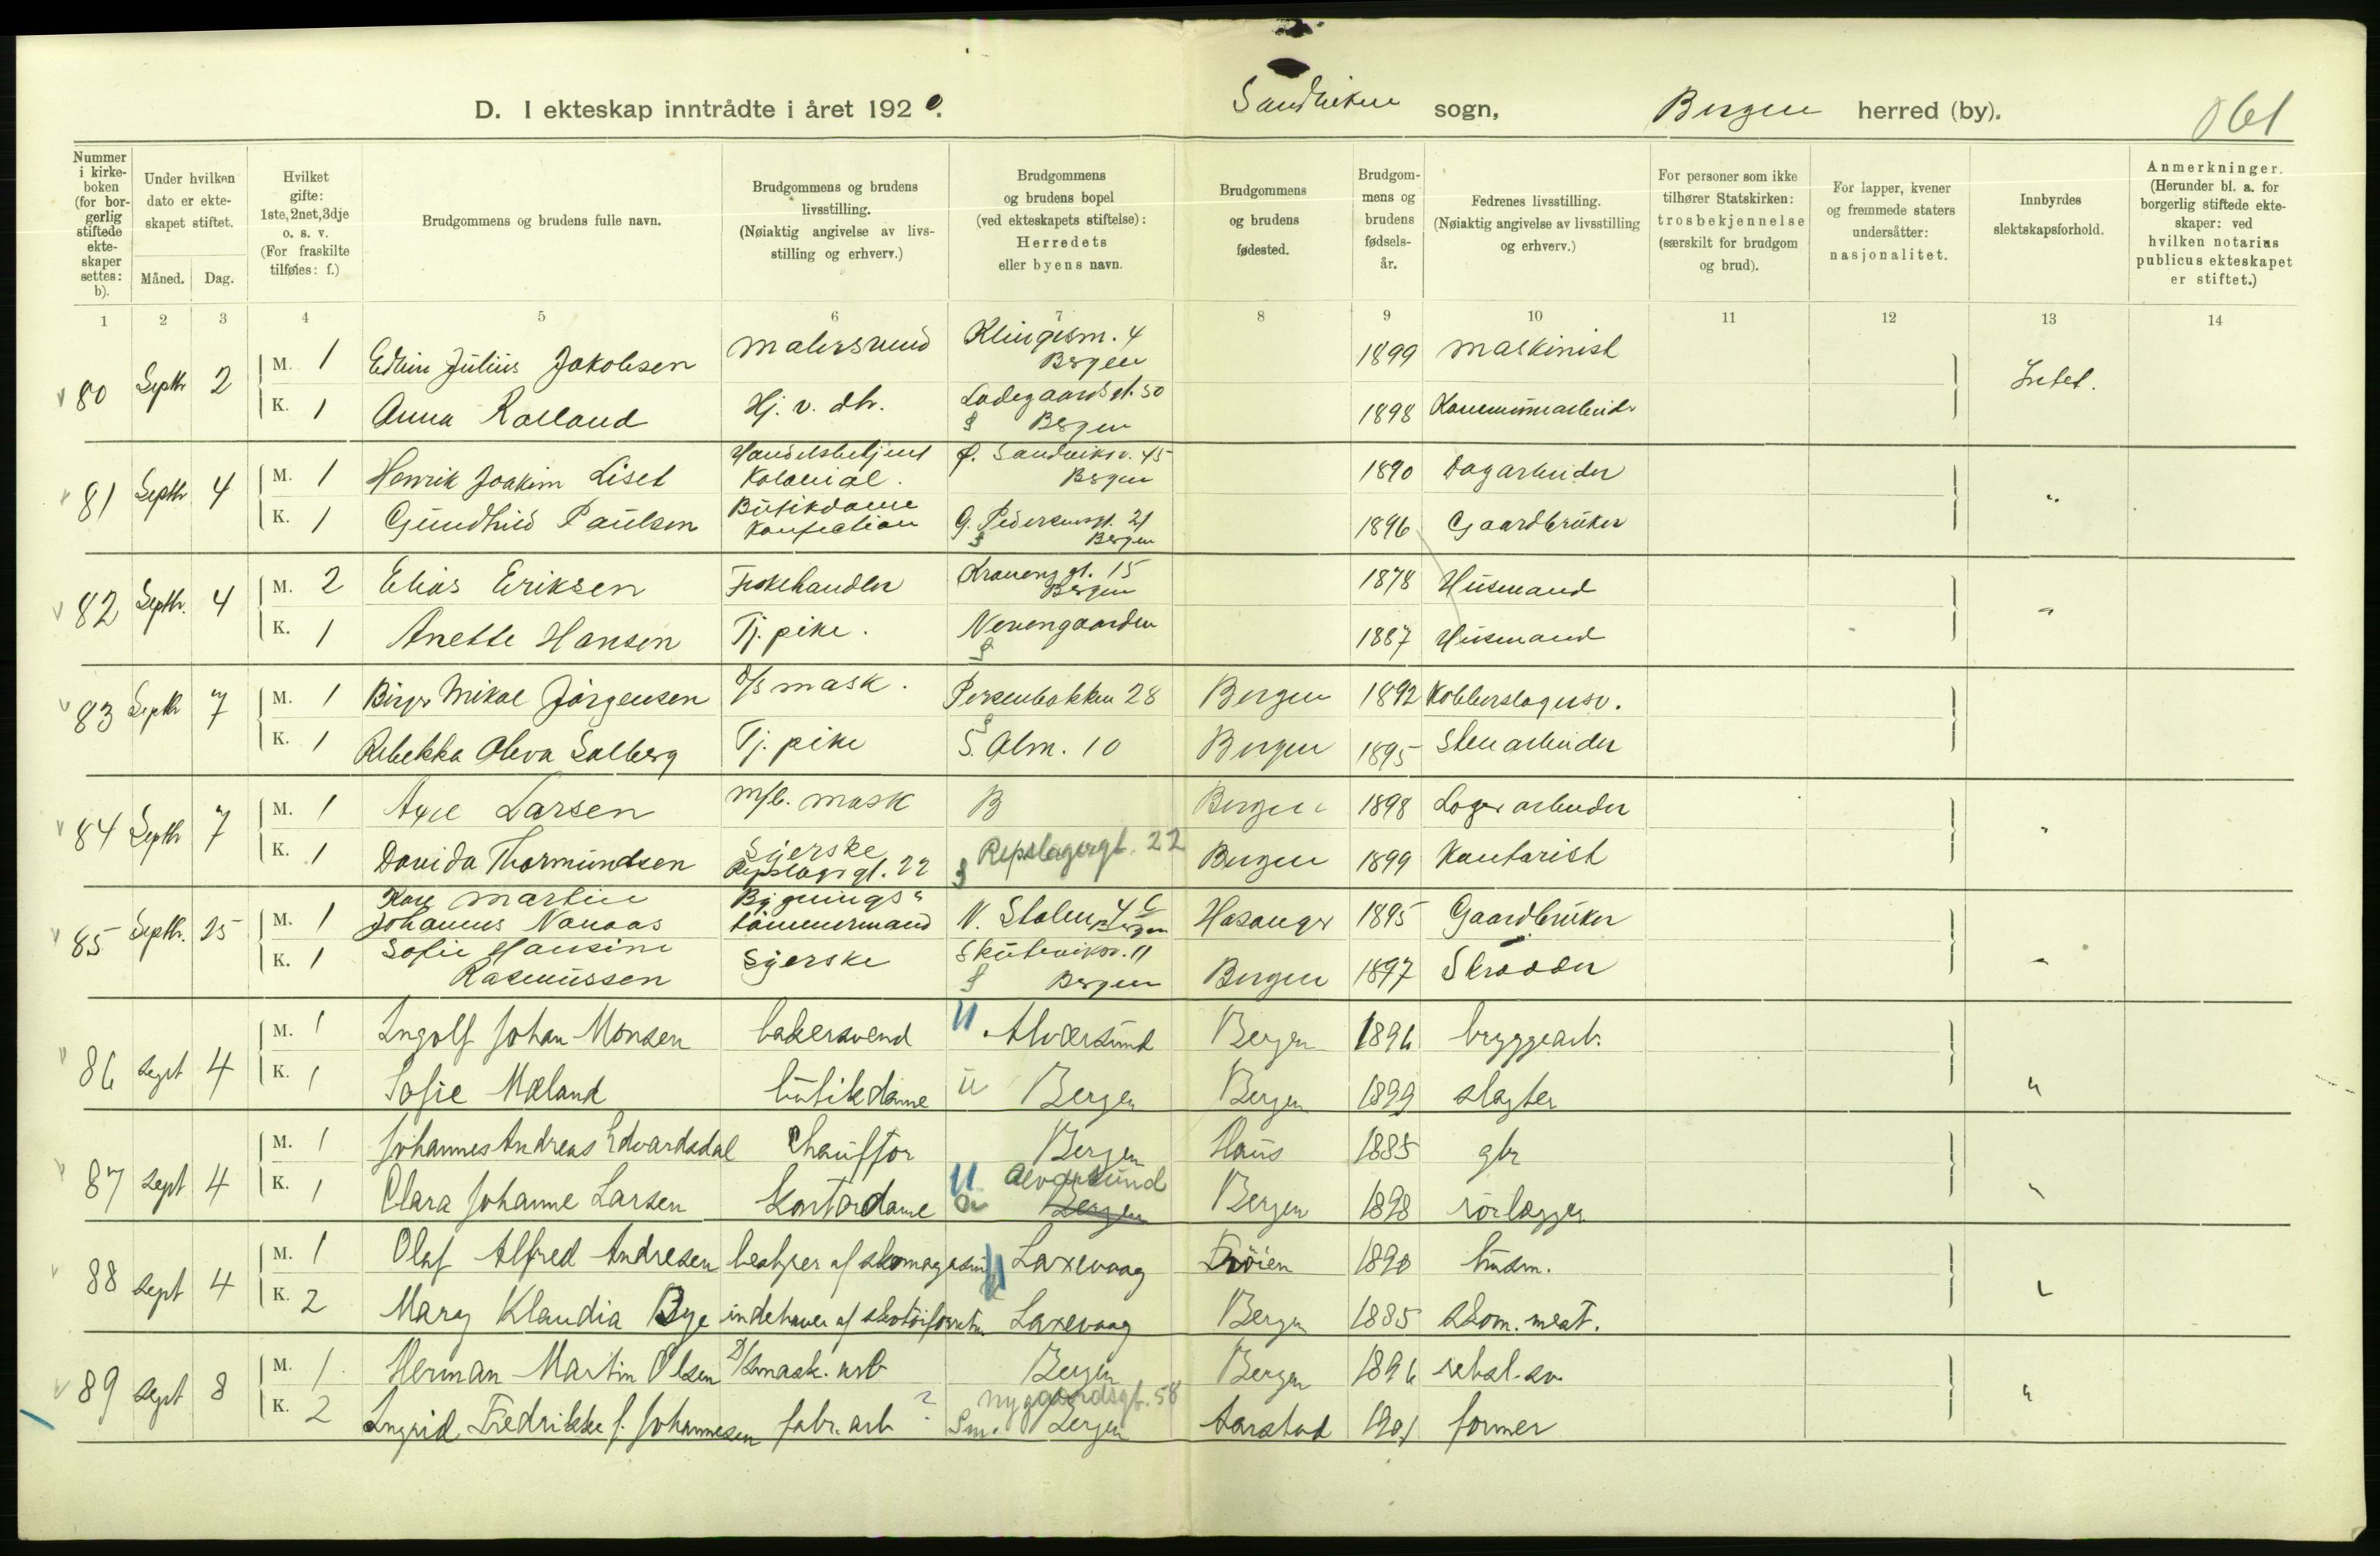 D. I ekteskap inntrådte i året 1920. Sandviken sogn, Bergen herred (by). 061
Nummer i kirke-boken (for bor-gerlig stiftede ekte-skaper settes: b).
Under hvilken dato er ekte-skapet stiftet.
Måned. Dag.
Hvilket gifte: 1ste, 2net, 3dje o. s. v. (For fraskilte tilføies: f.)
Brudgommens og brudens fulle navn.
Brudgommens og brudens livsstilling. (Nøiaktig angivelse av livs-stilling og erhverv.)
Brudgommens og brudens bopel (ved ekteskapets stiftelse): Herredets eller byens navn.
Brudgommens og brudens fødested.
Brudgom-mens og brudens fødsels-år.
Fedrenes livsstilling. (Nøiaktig angivelse av livsstilling og erhverv.)
For personer som ikke tilhører Statskirken: trosbekjennelse (særskilt for brudgom og brud).
For lapper, kvener og fremmede staters undersåtter: nasjonalitet.
Innbyrdes slektskapsforhold.
Anmerkninger. (Herunder bl. a. for borgerlig stiftede ekte-skaper: ved hvilken notarius publicus ekteskapet er stiftet.)
1 2 3 4 5 6 7 8 9 10 11 12 13 14
80 Septbr 2 M. 1 Edvin Julius Jakobsen malersvend Klingesm. 4 Bergen 1899 maskinist Intet.
K. 1 Anna Rolland Hj. v. dtr. Ladegaardsgt. 50 Bergen 1898 Kommunearbeider
81 Septbr 4 M. 1 Henrik Joakim Liset Handelsbetjent Kolonial. Ø. Sandviksv. 45 Bergen 1890 Dagarbeider "
K. 1 Gundhild Paulsen Butikdame Konfection G. Pedersensgt. 21 Bergen 1896 Gaardbruker
82 Septbr. 4 M. 2 Elias Eriksen Fiskehandler Kroneng gt. 15 Bergen 1878 Husmand "
K. 1 Anette Hansen Tj. pike. Nerengaarden 1887 Husmand
83 Septbr 7 M. 1 Birger Mikal Jørgensen D/s mask. Persenbakken 28 Bergen 1892 Kobberslagersv.
K. 1 Rebekka Oleva Solberg Tj. pike S. Alm. 10 Bergen 1895 Stenarbeider
84 Septbr 7 M. 1 Axel Larsen m/b. mask B Bergen 1898 Lagerarbeider "
K. 1 Davida Thormundsen Syerske Repslagergt. 22 Repslagergt. 22 Bergen 1899 Kontorist
85 Septbr. 25 M. 1 Karl Martin Johannes Nanaas Bygnings- tømmermand N. Stølen 4 C Bergen Hosanger 1895 Gaardbruker "
K. 1 Sofie Hansine Rasmussen Syerske Skuteviksv. 11 Bergen Bergen 1897 Skrædder
86 sept 4 M. 1 Ingolf Johan Monsen bakersvend U Alversund Bergen 1896 bryggearb.
K. 1 Sofie Mæland butikdame u Bergen Bergen 1899 slagter "
87 sept 4 M. 1 Johannes Andreas Edvardsdal Chauffør Bergen Haus 1885 gbr
K. 1 Clara Johanne Larsen Kontordame U Alversund Bergen Bergen 1898 rørlægger "
88 sept 4 M. 1 Olaf Alfred Andresen bestyrer af skomagasin U Laxevaag Frøien 1890 husm.
K. 2 Mary Klaudia Bye indehaver af skotøiforretn. Laxevaag Bergen 1885 skom. mest. "
89 sept 8 M. 1 Herman Martin Olsen D/smask. arb Bergen Bergen 1896 rebsl. sv.
K. 2 Ingrid Fredrikke f. Johannesen fabr. arb ? Nygaardsgt. 58 Sm. Bergen Aarstad 1901 former "